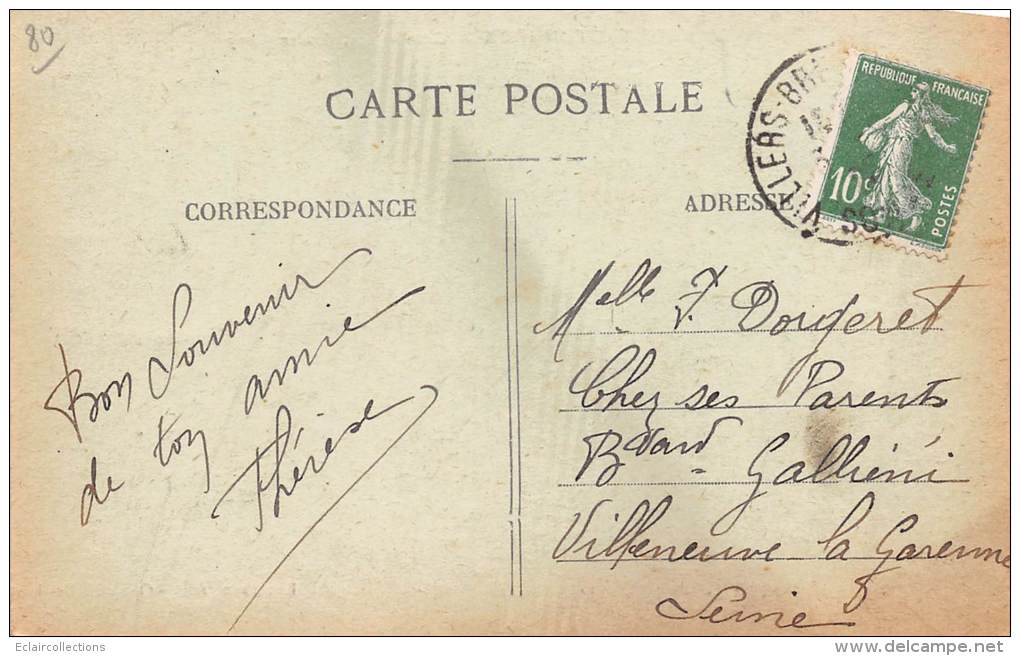 80
CARTE POSTALE
CORRESPONDANCE
ADRESSE
VILLERS-BRE
RÉPUBLIQUE FRANÇAISE
10c
POSTES
Bon Souvenir
de ton amie
Thérèse
Melle F. Dorgeret
Chez ses Parents
Bvard Galliéni
Villeneuve la Garenne
Seine
Eclaircollections
www.delcampe.net